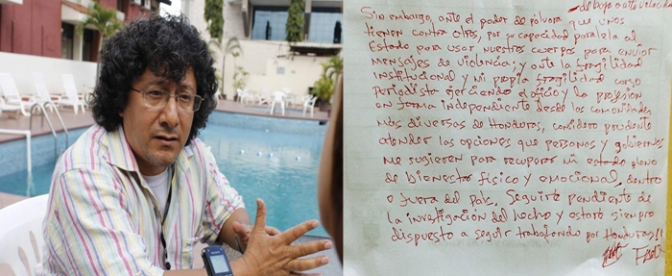 debajo o alta velocidad
Sin embargo, ante el poder de pólvora que unos
tienen contra otros, por su capacidad paralela al
Estado para usar nuestros cuerpos para enviar
mensajes de violencia; y ante la fragilidad
institucional y mi propia fragilidad como
periodista ejerciendo el oficio y la profesion
en forma independiente desde las comunidades
más diversas de Honduras, considero prudente
atender las opciones que personas y gobiernos
me sugieren para recuperar mi estado pleno
de bienestar físico y emocional, dentro
o fuera del país, Seguiré pendiente de
la investigación del hecho y estaré siempre
dispuesto a seguir trabajando por Honduras!!